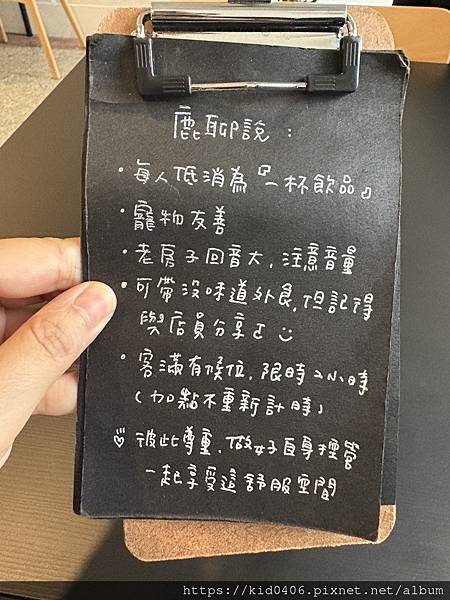 鹿聊說：
・每人低消為『一杯飲品』
・寵物友善
・老房子回音大，注意音量
・可帶沒味道外食，但記得
與店員分享ㄛ
・客滿有候位，限時2小時
（加點不重新計時）
彼此尊重，做好自身控管
一起享受這舒服空間
https://kid0406.pixnet.net/album